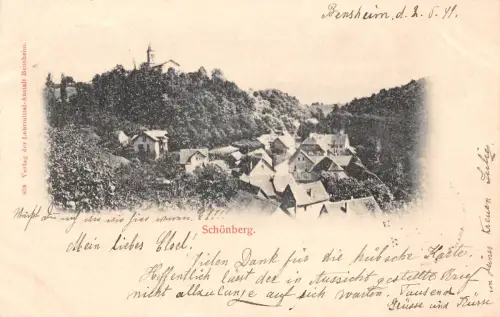 Bensheim, d. 2. 5. 99.
428 Verlag der Lehrmittel-Anstalt Bensheim.
Schönberg.
Mein liebes Closl.
Vielen Dank für die hübsche Karte.
Hoffentlich lässt der in Aussicht gestellte Brief
nicht allzu lange auf sich warten. Tausend
Grüsse und Küsse
von Deinem treuen Ludwig